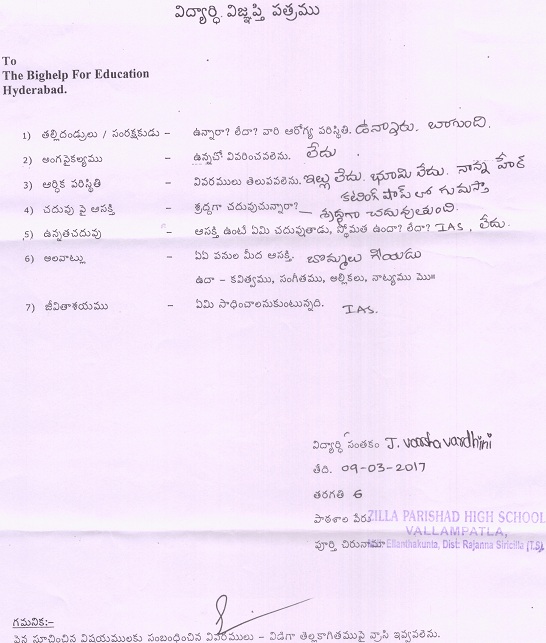 విద్యార్థి విజ్ఞప్తి పత్రము
To
The Bighelp For Education
Hyderabad.
1) తల్లిదండ్రులు / సంరక్షకుడు – ఉన్నారా? లేదా? వారి ఆరోగ్య పరిస్థితి. ఉన్నారు. బాగుంది.
2) అంగవైకల్యము – ఉన్నచో వివరించవలెను. లేదు
3) ఆర్థిక పరిస్థితి – వివరములు తెలుపవలెను. ఇల్లు లేదు. భూమి లేదు. నాన్న హేర్
కటింగ్ షాప్ లో గుమస్తా
4) చదువు పై ఆసక్తి – శ్రద్ధగా చదువుచున్నారా? – శ్రద్ధగా చదువుతుంది.
5) ఉన్నతచదువు – ఆసక్తి ఉంటే ఏమి చదువుతాడు, స్థోమత ఉందా? లేదా? IAS, లేదు.
6) అలవాట్లు – ఏఏ పనుల మీద ఆసక్తి. బొమ్మలు గీయడు
ఉదా – కవిత్వము, సంగీతము, అల్లికలు, నాట్యము మొ॥
7) జీవితాశయము – ఏమి సాధించాలనుకుంటున్నది. IAS.
విద్యార్థి సంతకం J. varshavardhini
తేది. 09-03-2017
తరగతి 6
పాఠశాల పేరు ZILLA PARISHAD HIGH SCHOOL
VALLAMPATLA,
పూర్తి చిరునామా Ellanthakunta, Dist: Rajanna Siricilla (T.S).
గమనిక:–
పైన సూచించిన విషయములకు సంబంధించిన వివరములు – విడిగా తెల్లకాగితముపై వ్రాసి ఇవ్వవలెను.